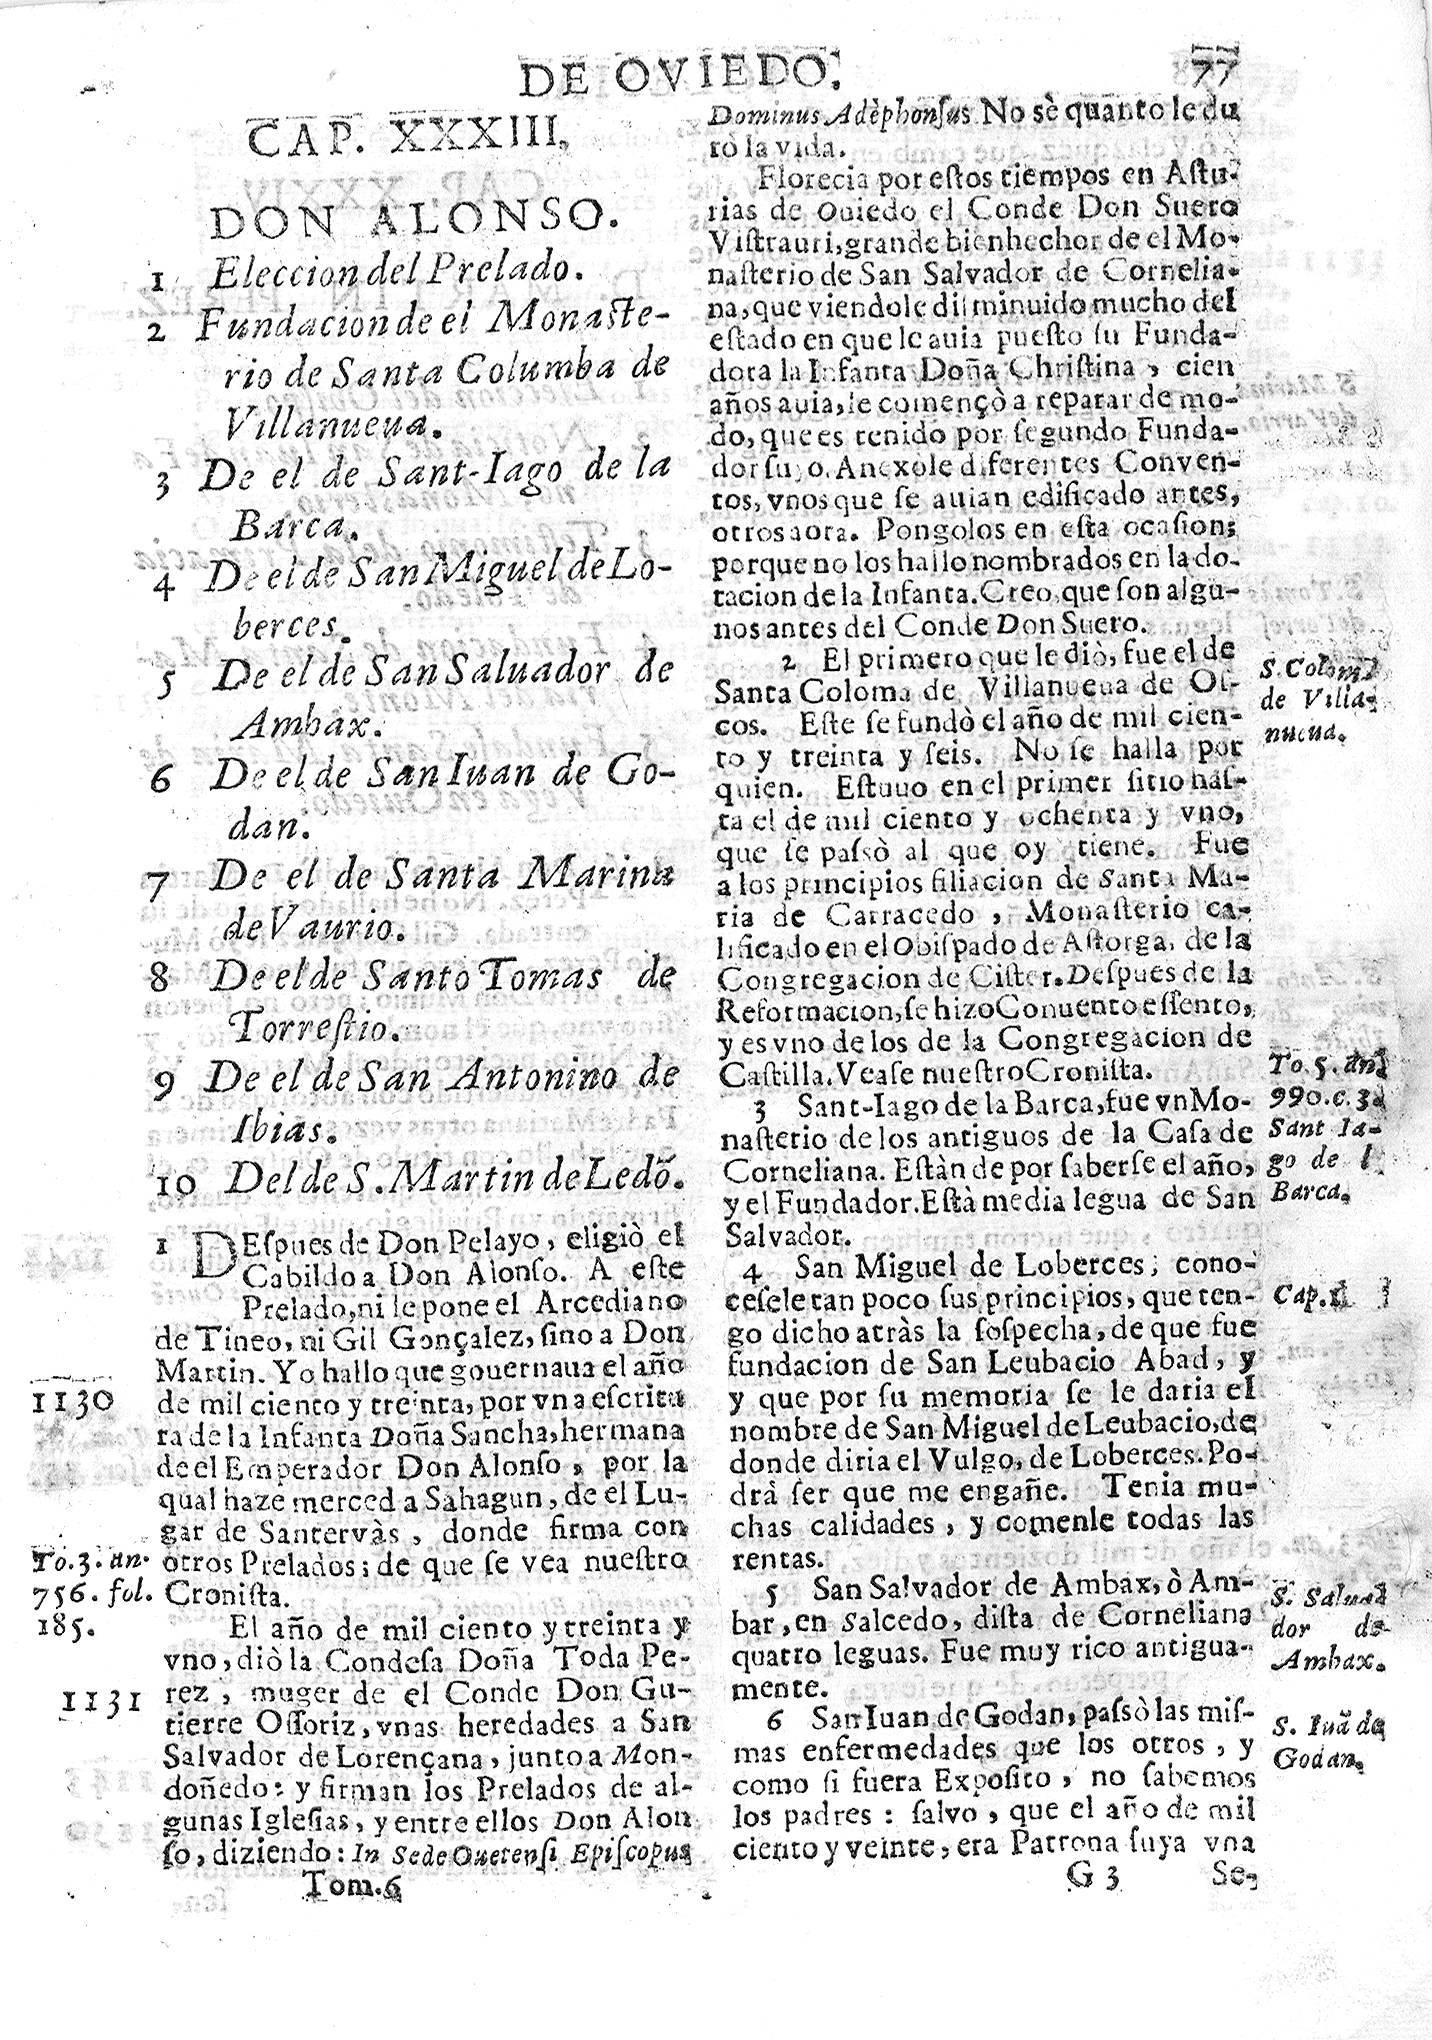 DE OVIEDO.
77
CAP. XXXIII.
DON ALONSO.
1 Eleccion del Prelado.
2 Fundacion de el Monaste-
rio de Santa Columba de
Villanueua.
3 De el de Sant-Iago de la
Barca.
4 De el de San Miguel de Lo-
berces.
5 De el de San Saluador de
Ambax.
6 De el de San Iuan de Go-
dan.
7 De el de Santa Marina
de Vaurio.
8 De el de Santo Tomas de
Torrestio.
9 De el de San Antonino de
Ibias.
10 Del de S. Martin de Ledõ.
1 DEſpues de Don Pelayo, eligiò el
Cabildo a Don Alonſo. A eſte
Prelado, ni le pone el Arcediano
de Tineo, ni Gil Gonçalez, ſino a Don
Martin. Yo hallo que gouernaua el año
1130
de mil ciento y treinta, por vna eſcritu
ra de la Infanta Doña Sancha, hermana
de el Emperador Don Alonſo, por la
qual haze merced a Sahagun, de el Lu-
gar de Santervàs, donde firma con
otros Prelados; de que ſe vea nueſtro
Croniſta.
To. 3. an.
756. fol.
185.
El año de mil ciento y treinta y
vno, diò la Condeſa Doña Toda Pe-
rez, muger de el Conde Don Gu-
1131
tierre Oſſoriz, vnas heredades a San
Salvador de Lorençana, junto a Mon-
doñedo: y firman los Prelados de al-
gunas Igleſias, y entre ellos Don Alon
ſo, diziendo: In Sede Ouetenſi Epiſcopus
Tom. 6
Dominus Adèphonſus No sè quanto le du
rò la vida.
Florecia por eſtos tiempos en Aſtu-
rias de Ouiedo el Conde Don Suero
Viſtrauri, grande bienhechor de el Mo-
naſterio de San Salvador de Cornelia-
na, que viendole diſminuido mucho del
eſtado en que le auia pueſto ſu Funda-
dora la Infanta Doña Chriſtina, cien
años auia, le començò a reparar de mo-
do, que es tenido por ſegundo Funda-
dor ſuyo. Anexole diferentes Conven-
tos, vnos que ſe auian edificado antes,
otros aora. Pongolos en eſta ocaſion;
porque no los hallo nombrados en la do-
tacion de la Infanta. Creo que ſon algu-
nos antes del Conde Don Suero.
2 El primero que le diò, fue el de
Santa Coloma de Villanueua de Oſ-
cos. Eſte ſe fundò el año de mil cien-
to y treinta y ſeis. No ſe halla por
quien. Eſtuuo en el primer ſitio haſ-
ta el de mil ciento y ochenta y vno,
que ſe paſsò al que oy tiene. Fue
a los principios filiacion de Santa Ma-
ria de Carracedo, Monaſterio ca-
lificado en el Obiſpado de Aſtorga, de la
Congregacion de Ciſter. Deſpues de la
Reformacion, ſe hizo Conuento eſſento,
y es vno de los de la Congregacion de
Caſtilla. Veaſe nueſtro Croniſta.
S. Coloma
de Villa-
nueua.
To. 5. an.
990. c. 3.
3 Sant-Iago de la Barca, fue vn Mo-
naſterio de los antiguos de la Caſa de
Corneliana. Eſtàn de por ſaberſe el año,
y el Fundador. Eſtà media legua de San
Salvador.
Sant Ia-
go de l
Barca.
4 San Miguel de Loberces; cono-
ceſele tan poco ſus principios, que ten-
go dicho atràs la ſoſpecha, de que fue
fundacion de San Leubacio Abad, y
y que por ſu memoria ſe le daria el
nombre de San Miguel de Leubacio, de
donde diria el Vulgo, de Loberces. Po-
drà ſer que me engañe. Tenia mu-
chas calidades, y comenle todas las
rentas.
Cap.
5 San Salvador de Ambax, ò Am-
bar, en Salcedo, diſta de Corneliana
quatro leguas. Fue muy rico antigua-
mente.
S. Salua
dor de
Ambax.
6 San Iuan de Godan, paſsò las miſ-
mas enfermedades que los otros, y
como ſi fuera Expoſito, no ſabemos
los padres: ſalvo, que el año de mil
ciento y veinte, era Patrona ſuya vna
S. Iuã de
Godan.
G 3
Se-